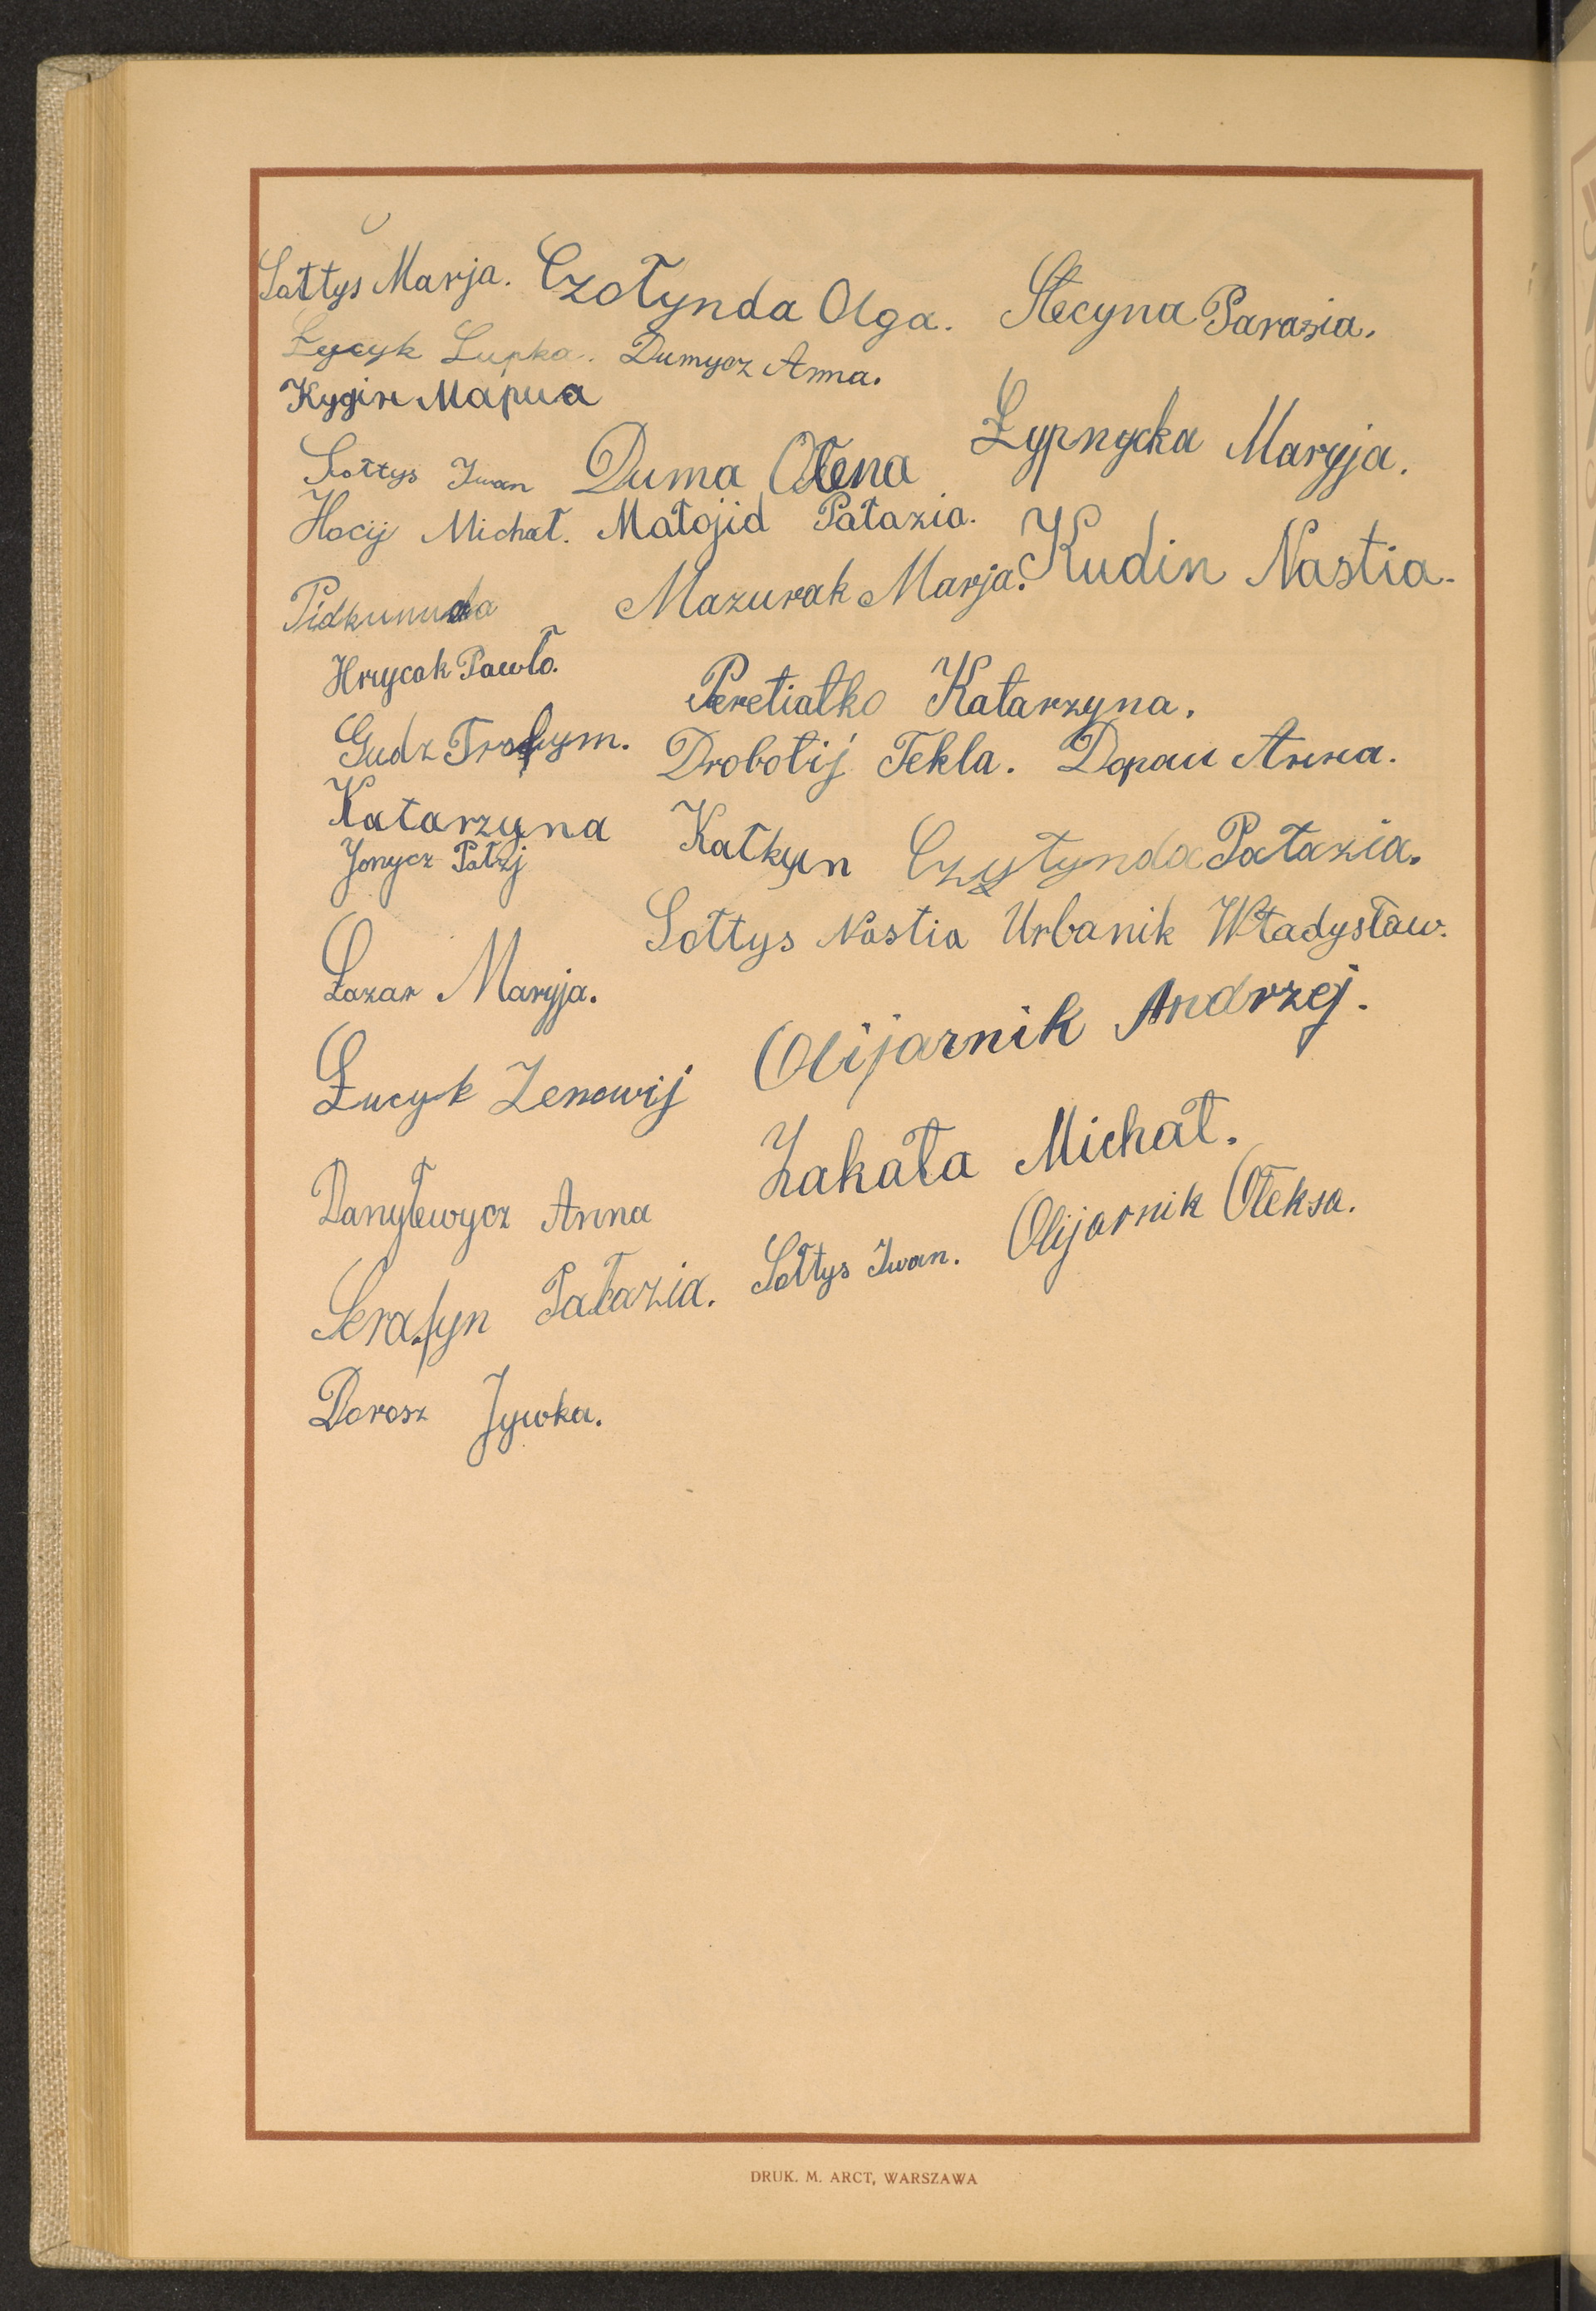 Sołtys Marja. Czołynda Olga. Stecyna Parazia.
Łycyk Łupka. Dumycz Anna.
Кудин Мария
Sołtys Iwan Duma Ołena Łypnycka Maryja.
Hocij Michał. Małojid Pałazia.
Mazurak Marja. Kudin Nastia.
Hrycak Pawło.
Peretiatko Katarzyna.
Gudz Trofym. Drobotij Tekla. Dopau Anna.
Katarzyna Kałkyn Czyłynda Pałazia.
Jonycz
Sołtys Nastia Urbanik Władysław.
Łazar Maryja.
Olijarnik Andrzej.
Łucyk Zenowij
Zakała Michał.
Danyłewycz Anna
Serafyn Pałazia. Sołtys Iwan. Olijarnik Ołeksa.
Dorosz Jywka.
DRUK. M. ARCT, WARSZAWA